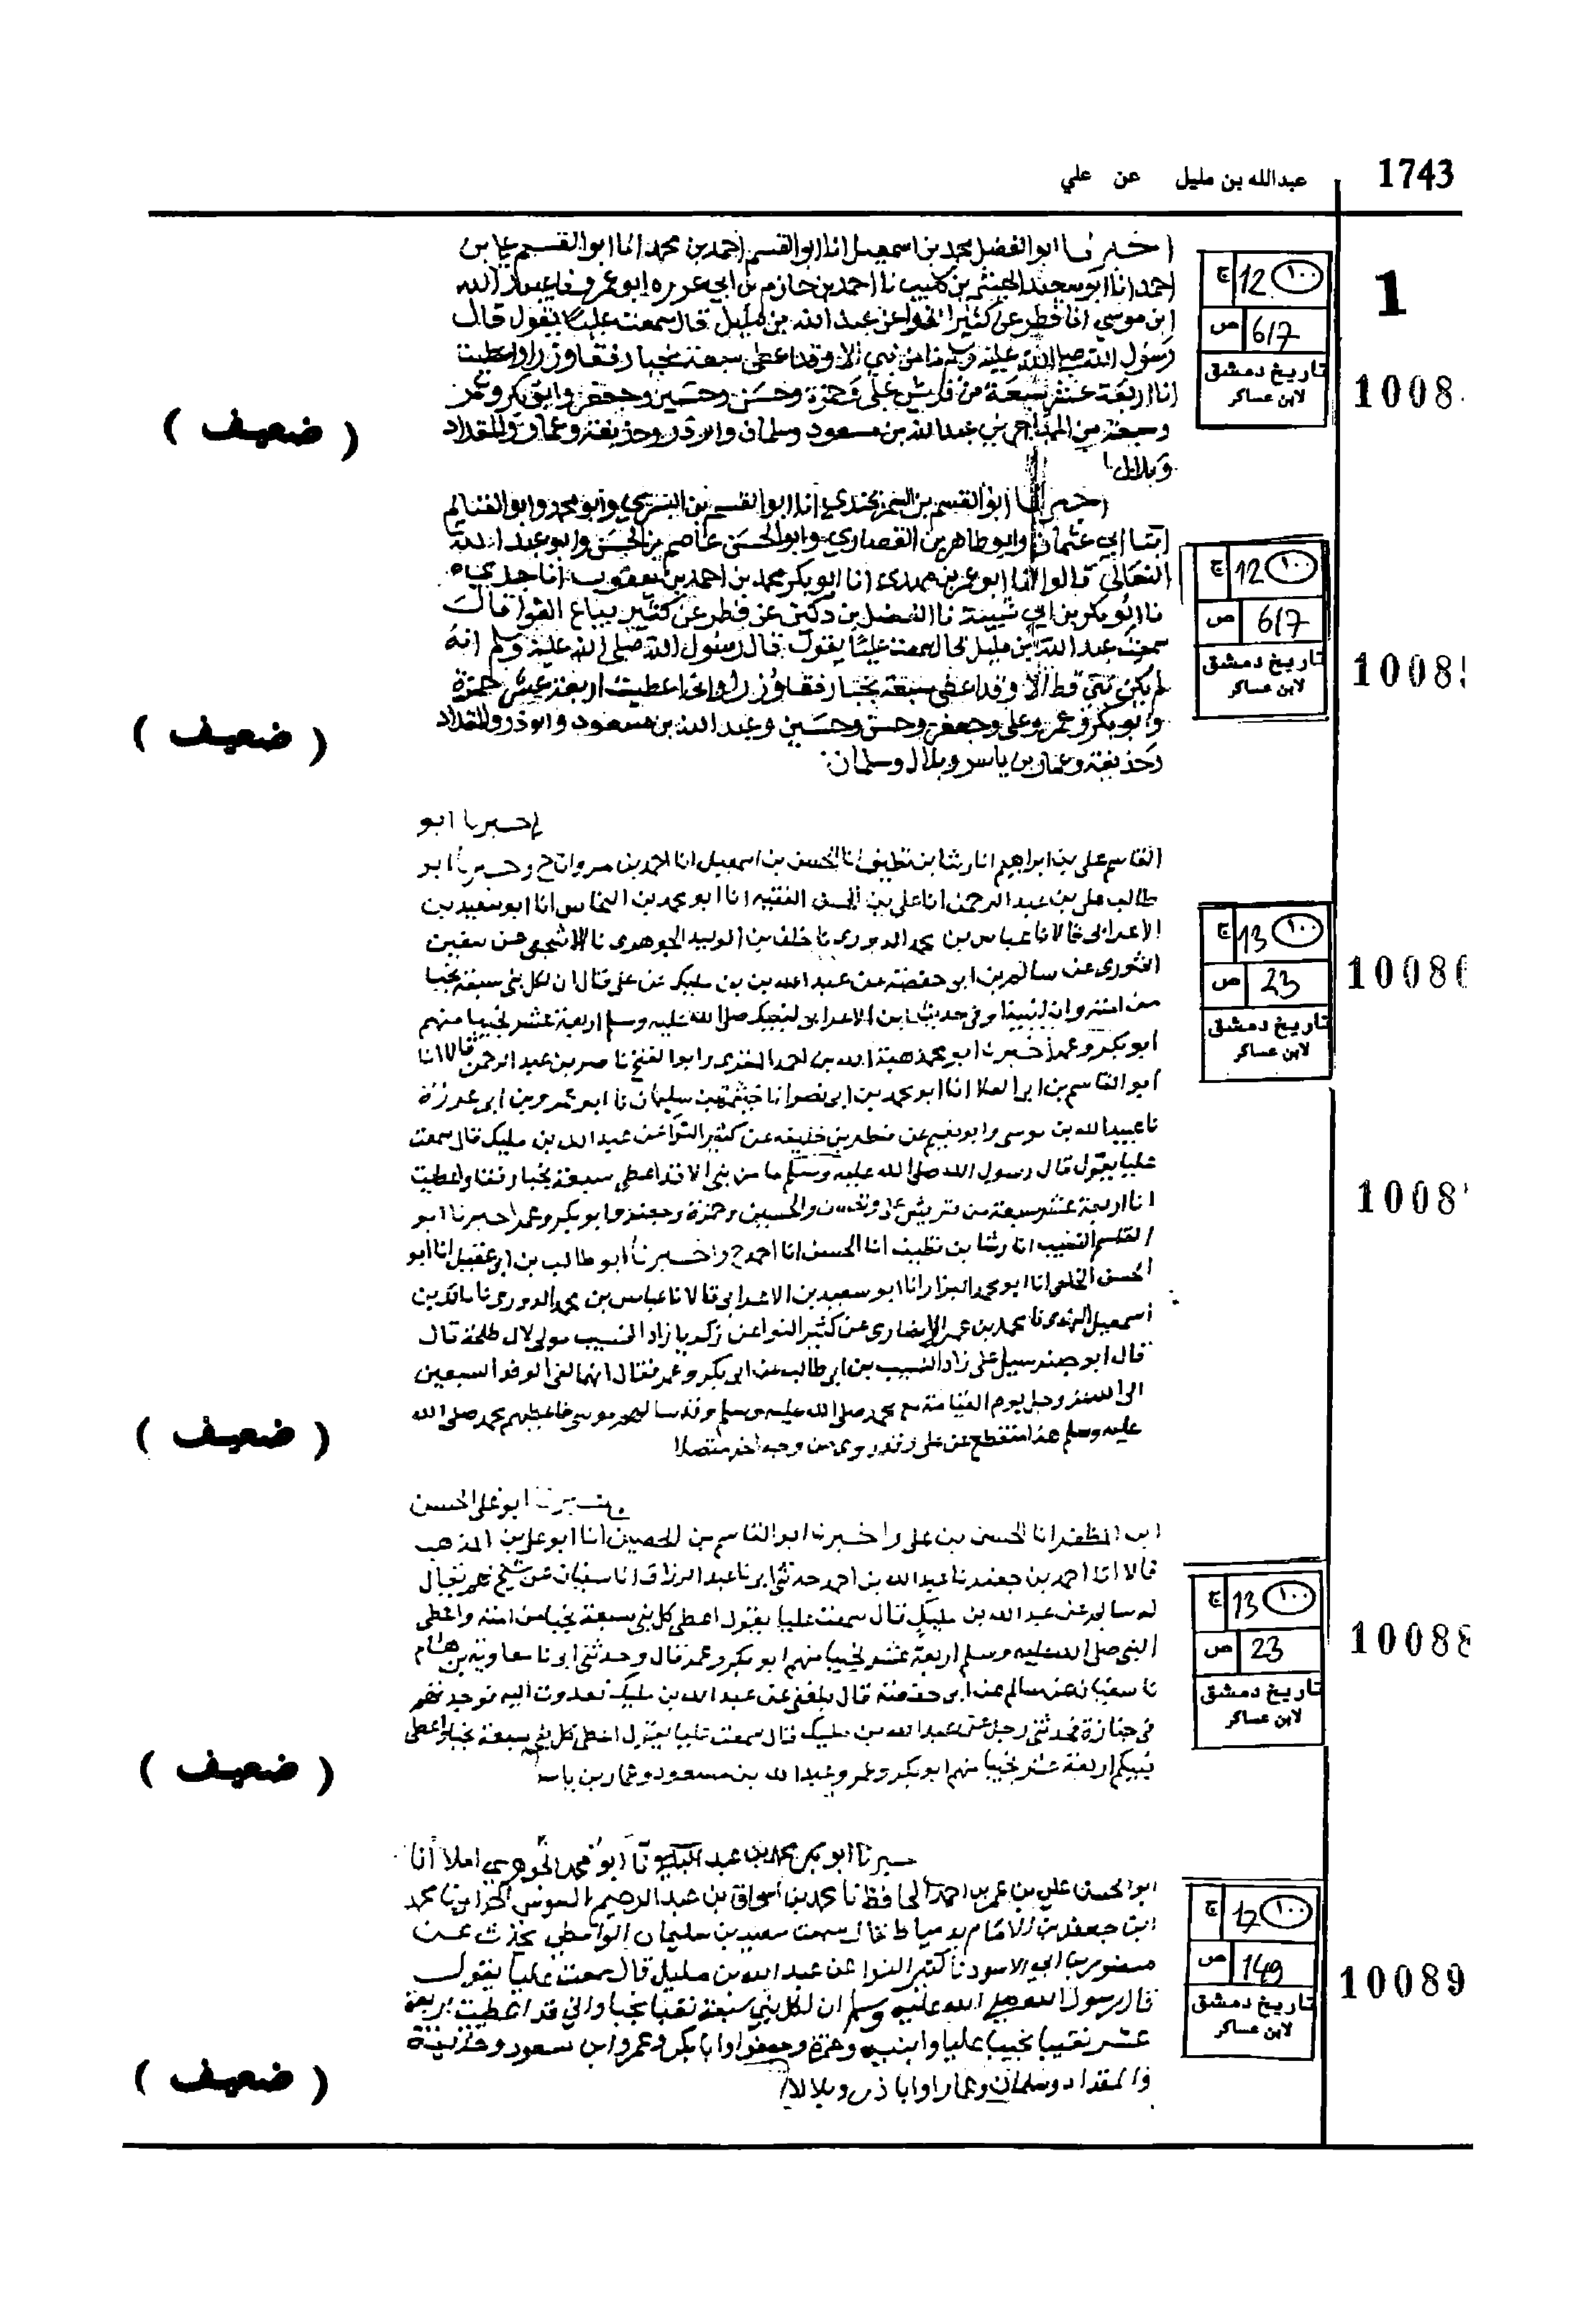 1743
عبدالله بن مليل عن علي
1
اخبرنا ابو الفضل محمد بن اسمعيل انا ابو القسم احمد بن محمد انا ابو القسم علي بن
احمد انا ابو سعيد الهيثم بن كليب نا احمد بن حازم بن ابي غرزه ابو عمرو نا عبيد الله
ابن موسي انا فطر عن كثير النوا عن عبد الله بن مليل قال سمعت عليا يقول قال
رسول الله صلى الله عليه وسلم ما من نبي الا وقد اعطى سبعة نجبا رفقا وزرا واعطيت
انا اربعة عشر سبعة من قريش علي وحمزة وحسن وحسين وجعفر وابو بكر وعمر
وسبعة من المهاجرين عبد الله بن مسعود وسلمان وابو ذر وحذيفة وعمار والمقداد
وبلال
100 ج 12
ص 617
تاريخ دمشق
لابن عساكر
1008
( ضعيف )
اخبرنا ابو القسم بن السمرقندي انا ابو القسم بن البسري وابو محمد وابو الغنايم
ابنا ابي عثمان وابو طاهر بن القصاري وابو الحسن عاصم بن الحسن وابو عبد الله
النعالي قالوا انا ابو عمر بن مهدي انا ابو بكر محمد بن احمد بن يعقوب انا جدي
نا ابو بكر بن ابي شيبة نا الفضل بن دكين عن فطر عن كثير بياع النوا قال
سمعت عبد الله بن مليل قال سمعت عليا يقول قال رسول الله صلى الله عليه وسلم انه
لم يكن نبي قط الا وقد اعطى سبعة نجبا رفقا وزرا واني اعطيت اربعة عشر حمزة
وابو بكر وعمر وعلي وجعفر وحسن وحسين وعبد الله بن مسعود وابو ذر والمقداد
وحذيفة وعمار بن ياسر وبلال وسلمان
١٠٠ ج 12
ص 617
تاريخ دمشق
لابن عساكر
1008
( ضعيف )
اخبرنا ابو
القاسم علي بن ابراهيم انا رشا بن نظيف انا الحسن بن اسمعيل انا احمد بن مروان ح واخبرنا ابو
طالب علي بن عبد الرحمن انا علي بن الحسن الفقيه انا ابو محمد بن النحاس انا ابو سعيد بن
الاعرابي قالا نا عباس بن محمد الدوري نا خلف بن الوليد الجوهري نا الاشجعي عن سفين
الثوري عن سالم بن ابي حفصة عن عبد الله بن مليك عن علي قال ان لكل نبي سبعة نجبا
من امته وان لنبينا وفي حديث ابن الاعرابي لنبيكم صلى الله عليه وسلم اربعة عشر نجيبا منهم
ابو بكر وعمر اخبرنا ابو محمد هبة الله بن احمد المزكي وابو الفتح ناصر بن عبد الرحمن قالا انا
ابو القاسم بن ابي العلا انا ابو محمد بن ابي نصر انا خيثمة بن سليمان نا ابو عمرو بن ابي غرزة
نا عبيد الله بن موسى وابو نعيم عن فطر بن خليفه عن كثير النوا عن عبد الله بن مليك قال سمعت
عليا يقول قال رسول الله صلى الله عليه وسلم ما من نبي الا قد اعطي سبعة نجبا رفقا واعطيت
انا اربعة عشر سبعة من قريش والحسين وحمزة وجعفر وابو بكر وعمر اخبرنا ابو
القاسم النسيب انا رشا بن نظيف انا الحسن انا احمد ح واخبرنا ابو طالب بن ابي عقيل انا ابو
الحسن الخلعي انا ابو محمد البزار انا ابو سعيد بن الاعرابي قالا نا عباس بن محمد الدوري نا بن
اسمعيل نا محمد بن عمر الانصاري عن كثير النوا عن زكريا زاد النسيب مولى لال طلحة قال
قال ابو سيل علي زاد النسيب بن ابي طالب عن ابي بكر وعمر فقال انهما لفي الوفد السبعين
الى الله عز وجل يوم القيامة مع محمد صلى الله عليه وسلم وقد سالهم موسى فاعطيهم محمد صلى الله
عليه وسلم هذا منقطع عن علي وقد روي من وجه اخر متصلا
١٠٠ ج 13
ص 23
تاريخ دمشق
لابن عساكر
1008
1008
( ضعيف )
اخبرنا ابو علي الحسن
ابن المظفر انا الحسن بن علي واخبرنا ابو القاسم بن الحصين انا ابو علي بن المذهب
قالا انا احمد بن جعفر نا عبد الله بن احمد حدثني ابي نا عبد الرزاق انا سفيان عن شيخ لهم يقال
له سالم عن عبد الله بن مليك قال سمعت عليا يقول اعطى كل نبي سبعة نجبا من امته واعطي
النبي صلى الله عليه وسلم اربعة عشر نجيبا منهم ابو بكر وعمر قال وحدثني ابي نا معاوية بن هشام
نا سفيان عن سالم عن ابي حفصة قال بلغني عن عبد الله بن مليك فغدوت اليه فوجدتهم
في جنازة فحدثني رجل عن عبد الله بن مليك قال سمعت عليا يقول اعطى كل نبي سبعة نجبا واعطى
نبيكم اربعة عشر نجيبا منهم ابو بكر وعمر وعبد الله بن مسعود وعمار بن ياسر
١٠٠ ج 13
ص 23
تاريخ دمشق
لابن عساكر
10088
( ضعيف )
اخبرنا ابو بكر محمد بن عبد الباقي نا ابو محمد الجوهري املا انا
ابو الحسن علي بن عمر بن احمد الحافظ نا محمد بن اسحاق بن عبد الرحيم السوسي محمد
ابن جعفر بن الامام بدمياط قال سمعت سعيد بن سليمان الواسطي يحدث عن
منصور بن ابي الاسود نا كثير النوا عن عبد الله بن مليل قال سمعت عليا يقول
قال رسول الله صلى الله عليه وسلم ان لكل نبي سبعة نقبا نجبا واني قد اعطيت اربعة
عشر نقيبا نجيبا عليا وابنيه وحمزة وجعفرا وابا بكر وعمر وابن مسعود وحذيفة
والمقداد وسلمان وعمارا وابا ذر وبلالا
١٠٠ ج 17
ص 149
تاريخ دمشق
لابن عساكر
10089
( ضعيف )